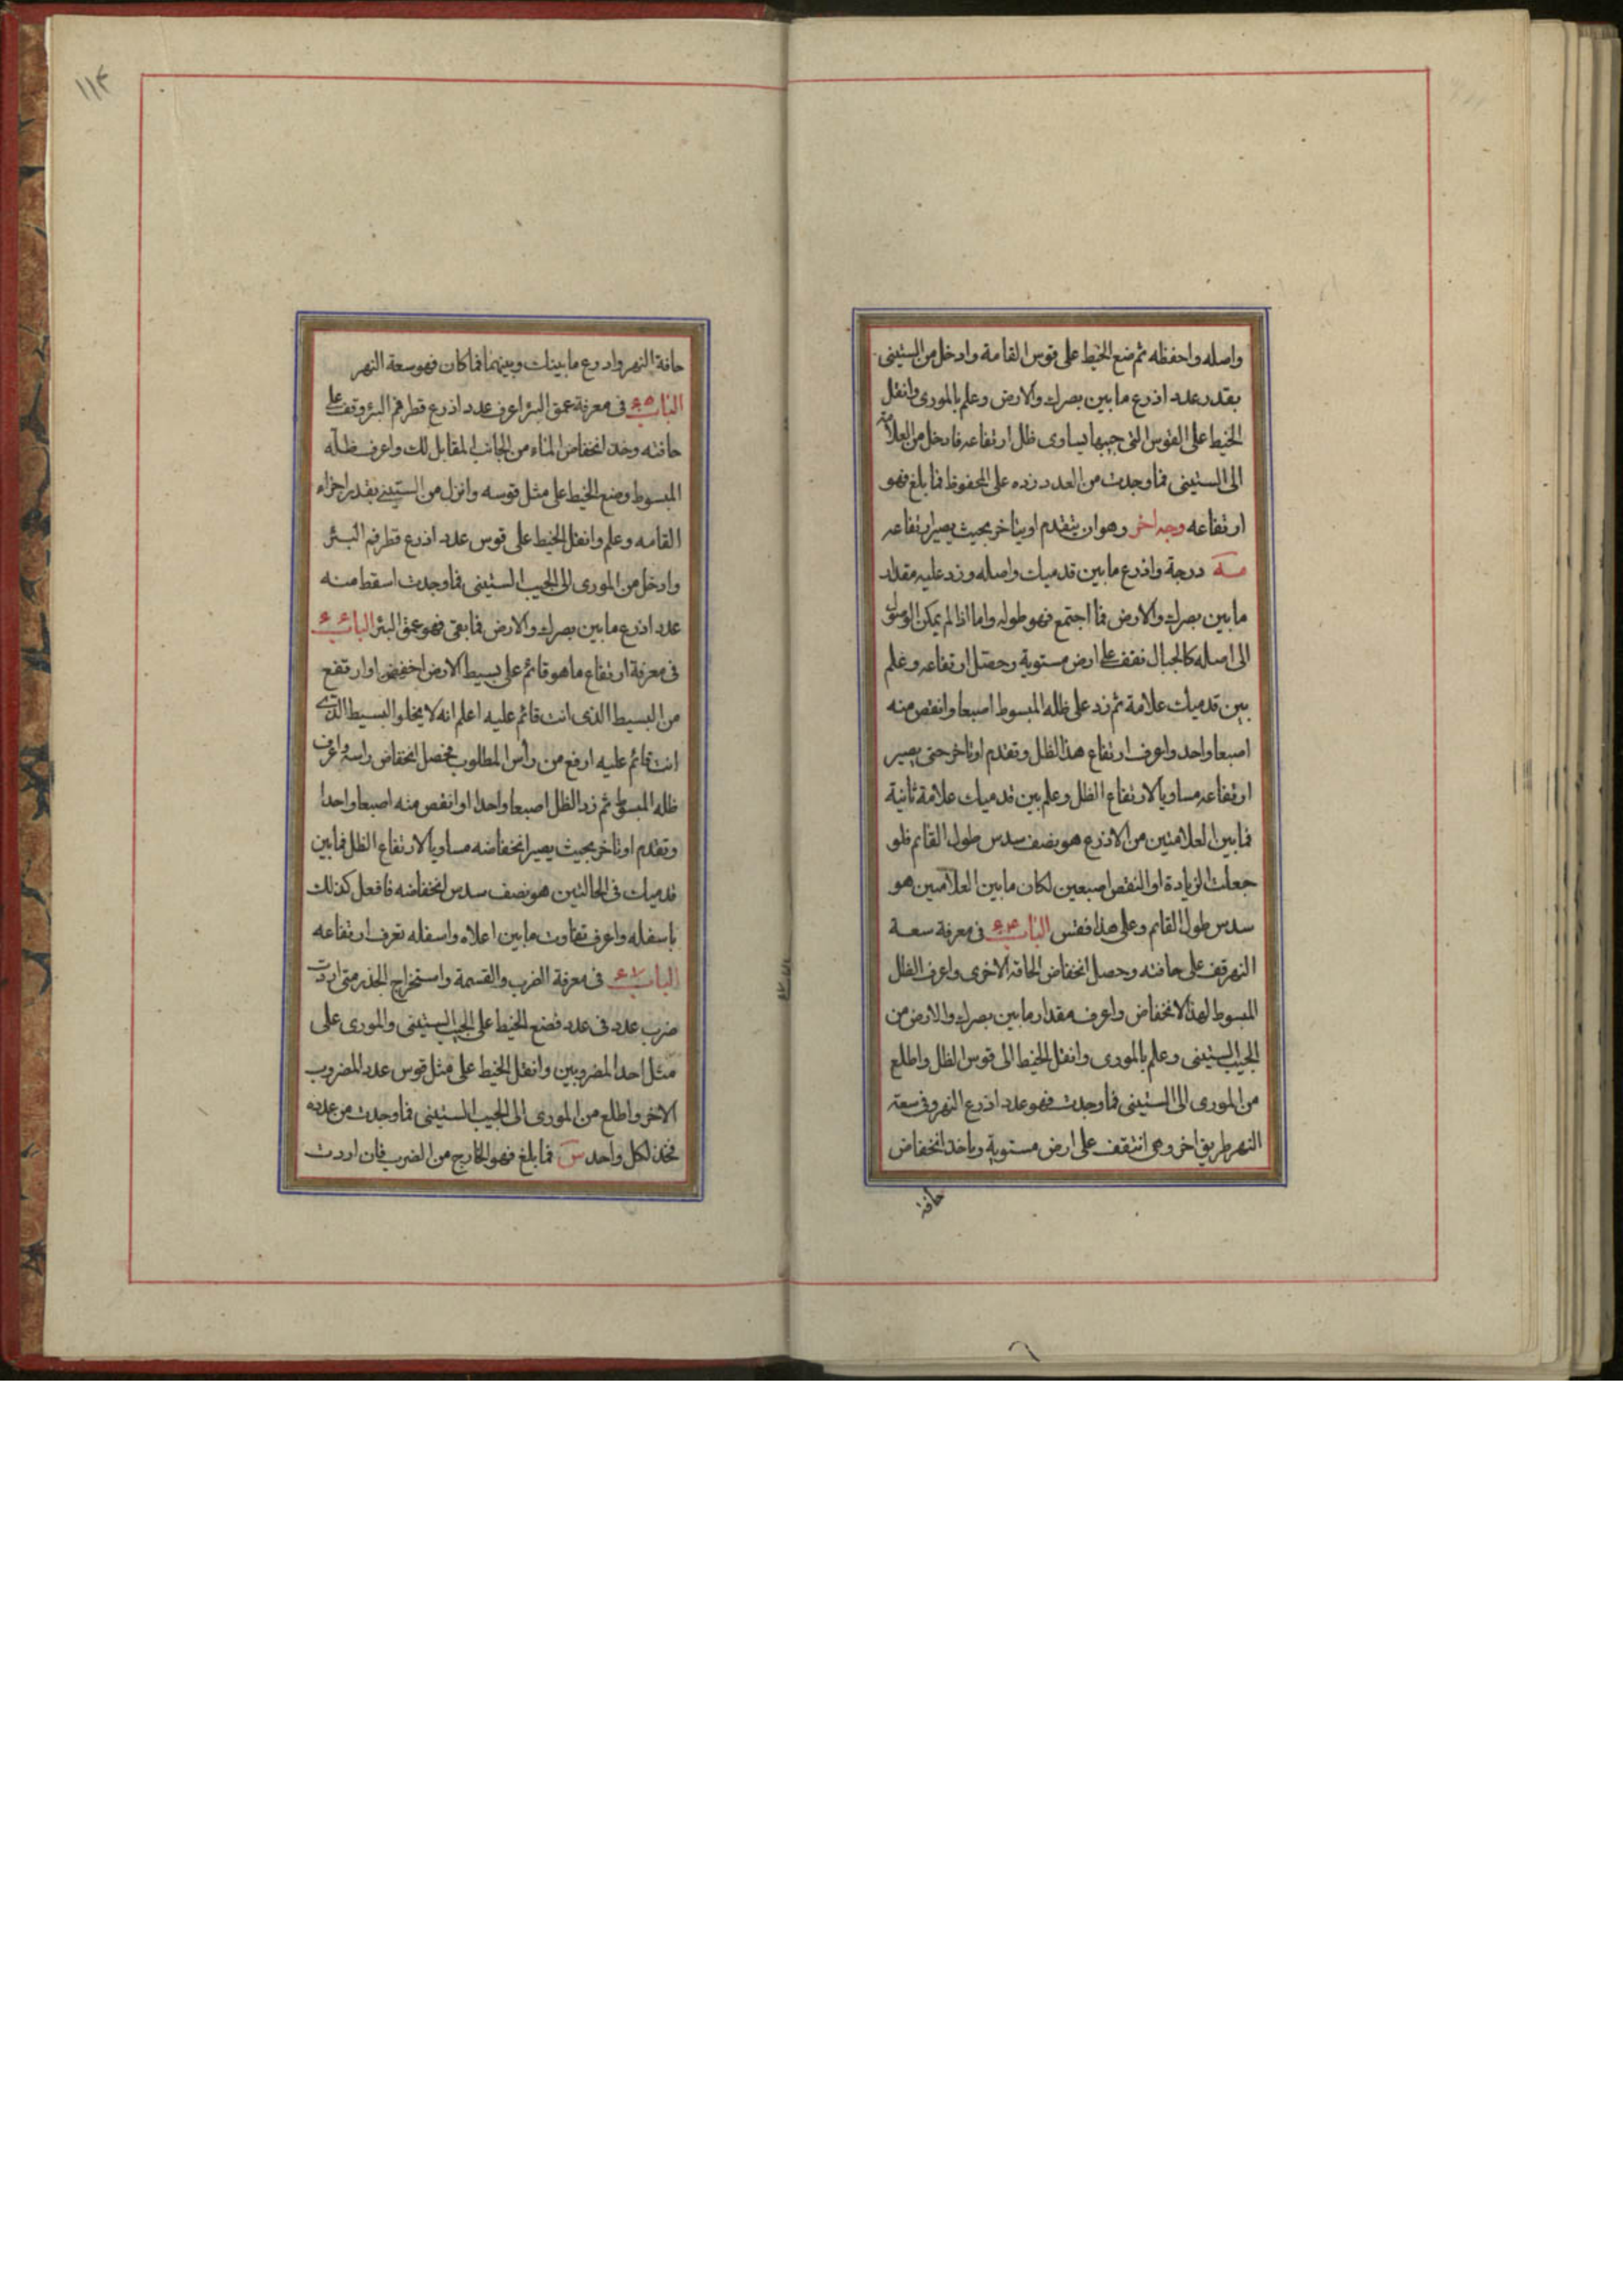 واصله واحفظه ثم ضع الخيط على قوس القامة وادخل من الستينى
بقدر عدد اذرع ما بين بصرك والارض وعلم بالمورى وانقل
الخيط على القوس التى جيبها يساوى ظل ارتفاعه فادخل من العلامة
الى الستينى فما وجدت من العدد زده على المحفوظ فما بلغ فهو
ارتفاعه وجه اخر وهو ان يتقدم او يتاخر بحيث يصير ارتفاعه
مه درجة واذرع ما بين قدميك واصله وزد عليه مقدار
ما بين بصرك والارض فما اجتمع فهو طوله واما اذا لم يمكن الوصول
الى اصله كالجبال فقف على ارض مستوية وحصل ارتفاعه وعلم
بين قدميك علامة ثم زد على ظله المبسوط اصبعا وانقص منه
اصبعا واحد واعرف ارتفاع هذا الظل وتقدم او تاخر حتى يصير
ارتفاعه مساويا لارتفاع الظل وعلم بين قدميك علامة ثانية
فما بين العلامتين من الاذرع هو نصف سدس طول القايم فلو
جعلت الزيادة او النقص اصبعين لكان ما بين العلامتين هو
سدس طول القايم وعلى هذا فقس الباب ٦٤ فى معرفة سعة
النهر قف على حافته وحصل انخفاض الحافة الاخرى واعرف الظل
المبسوط لهذا الانخفاض واعرف مقدار ما بين بصرك والارض من
الجيب الستينى وعلم بالمورى وانقل الخيط الى قوس الظل واطلع
من المورى الى الستينى فما وجدت فهو عدد اذرع النهر وفى سعة
النهر طريق اخر وهى ان تقف على ارض مستوية وياخذ انخفاض
حافة
١١٤
حافة النهر واذرع ما بينك وبينهما فما كان فهو سعة النهر
الباب ٦٥ فى معرفة عمق البئر اعرف عدد اذرع قطر فم البئر وقف على
حافته وخذ انخفاض الماء من الجانب المقابل لك واعرف ظله
المبسوط وضع الخيط على مثل قوسه وانزل من الستينى بقدر اجزاء
القامه وعلم وانقل الخيط على قوس عدد اذرع قطر فم البئر
وادخل من المورى الى الجيب الستينى فما وجدت اسقط منه
عدد اذرع ما بين بصرك والارض فما بقى فهو عمق البئر الباب ٦٦
فى معرفة ارتفاع ما هو قائم على بسيط الارض اخفض او ارتفع
من البسيط الذى انت قائم عليه اعلم انه لا يخلو البسيط الذى
انت قائم عليه ارفع من رأس المطلوب فحصل انخفاض راسه واعرف
ظله المبسوط ثم زد الظل اصبعا واحدا او انقص منه اصبعا واحدا
وتقدم او تاخر بحيث يصير انخفاضه مساويا لارتفاع الظل فما بين
قدميك فى الحالتين هو نصف سدس انخفاضه فافعل كذلك
باسفله واعرف تفاوت ما بين اعلاه واسفله تعرف ارتفاعه
الباب ٦٧ فى معرفة الضرب والقسمة واستخراج الجذر متى اردت
ضرب عدد فى عدد فضع الخيط على الجيب الستينى والمورى على
مثل احد المضروبين وانقل الخيط على مثل قوس عدد المضروب
الاخر واطلع من المورى الى الجيب الستينى فما وجدت من عدده
فخذ لكل واحد س فما بلغ فهو الخارج من الضرب فان اردت